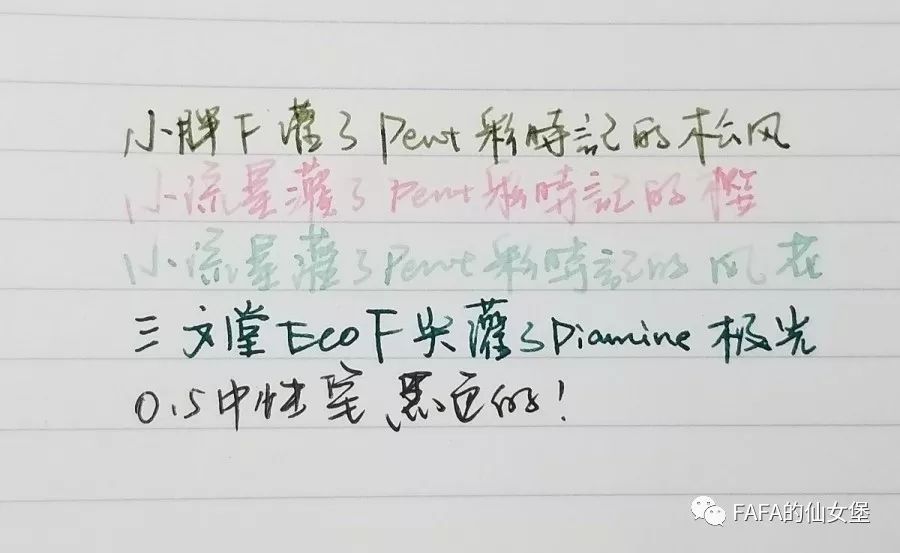 小胖下灌了Pent彩時記的松风
小流星灌了Pent彩時記的樱
小流星灌了Pent彩時記的风花
三文堂Eco F尖灌了Diamine极光
0.5中性笔 黑色的！
FAFA的仙女堡